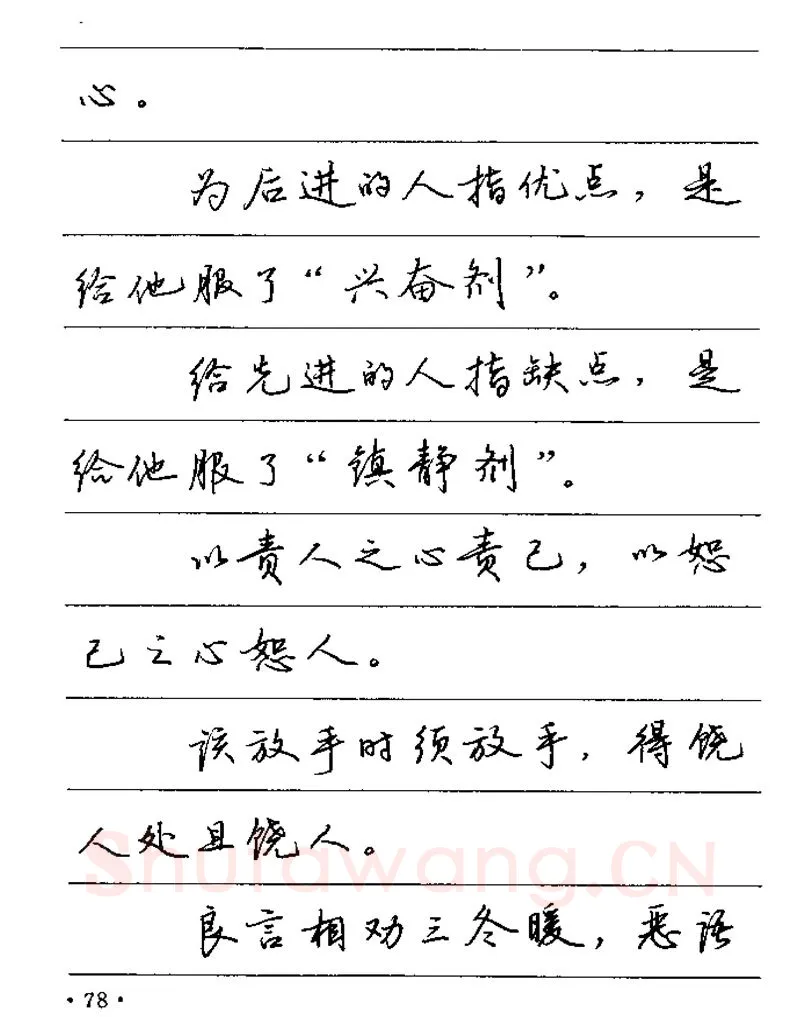 心。
为后进的人指优点，是
给他服了“兴奋剂”。
给先进的人指缺点，是
给他服了“镇静剂”。
以责人之心责己，以恕
己之心恕人。
该放手时须放手，得饶
人处且饶人。
Shufawang.CN
良言相劝三冬暖，恶语
·78·